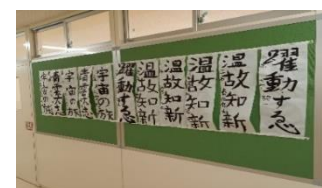 躍動する
温故知新
温故知新
温故知新
温故知新
躍動する
宇宙の
宇宙の